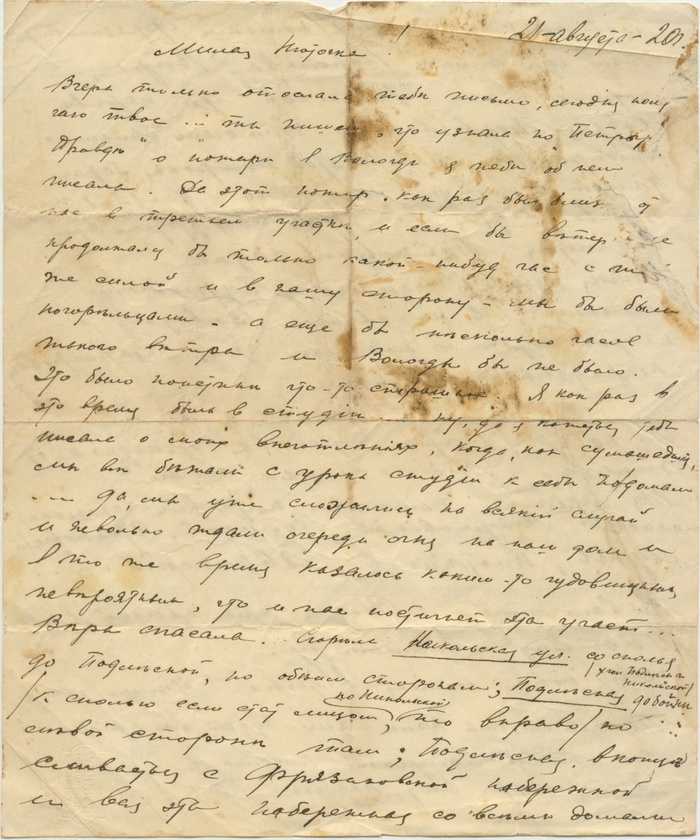 21-августа-20г.
Милая !
Вчера только отослала тебе письмо, сегодня
твое ... ты пишешь, что узнала по "Петрогр.
Правде" о пожаре в Вологде я тебе об нем
писала. Да этот пожар как раз был близ от
нас в третьем участке, и если бы ветер еще
продолжался бы только какой-нибудь час с той
же силой и в нашу сторону - мы бы были
погорѣльцами - а еще бы несколько часов
такого ветра и Вологды бы не было.
Это было поистине что-то страшное. Я как раз в
это время была в студіи ... ну, да я кажется тебе
писала о своих впечатлениях, когда, как сумасшедшія,
мы все бежали с урока студіи к себе по домам
... да, мы уже сложились на всякій случай
и невольно ждали очереди огня на наш дом и
в то же время казалось каким-то чудовищным
невероятным, что и нас постигнет эта участь...
Вера спасала.. Сгорела Никольская ул. со сполья
до Подлесной, по обеим сторонам; Подлесная до бойни
/ угол Подлесн. и Никольской /
/ к сполью если стать лицом, по Никольской то вправо / по
левой стороне там; Подлесная в конце
сливается с Фрязиновской набережной
и вся эта набережная со всеми домами